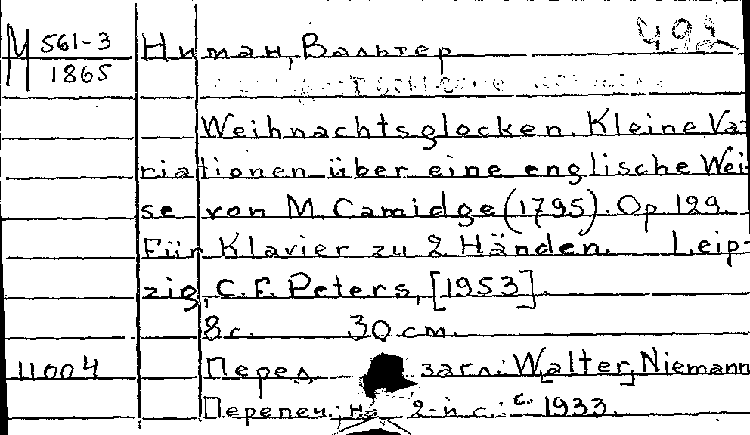 М 561-3 Ниман, Вальтер 492
1865
Weihnachtsglocken. Kleine Va-
riationen über eine englische Wei-
se von M. Camidge (1795). Op. 129.
Für Klavier zu 2 Händen. Leip-
zig, C. F. Peters, [1953].
8 с. 30 см.
11004 Перед загл.: Walter Niemann
Перепеч.: на 2-й с.: c. 1933.